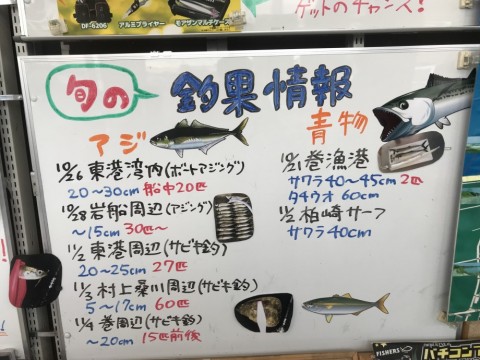 ゲットのチャンス！
DF-6206
アルミプライヤー
モアザンマルチケース
旬の
釣果情報
アジ
10/26 東港湾内(ボートアジング)
20～30cm 船中20匹
10/28 岩船周辺(アジング)
～15cm 30匹～
11/2 東港周辺(サビキ釣)
20～25cm 27匹
11/3 村上桑川周辺(サビキ釣)
5～17cm 60匹
11/4 巻周辺(サビキ釣)
～20cm 15匹前後
青物
10/21 巻漁港
サワラ40～45cm 2匹
タチウオ 60cm
11/2 柏崎サーフ
サワラ40cm
FISHERS
パチコン